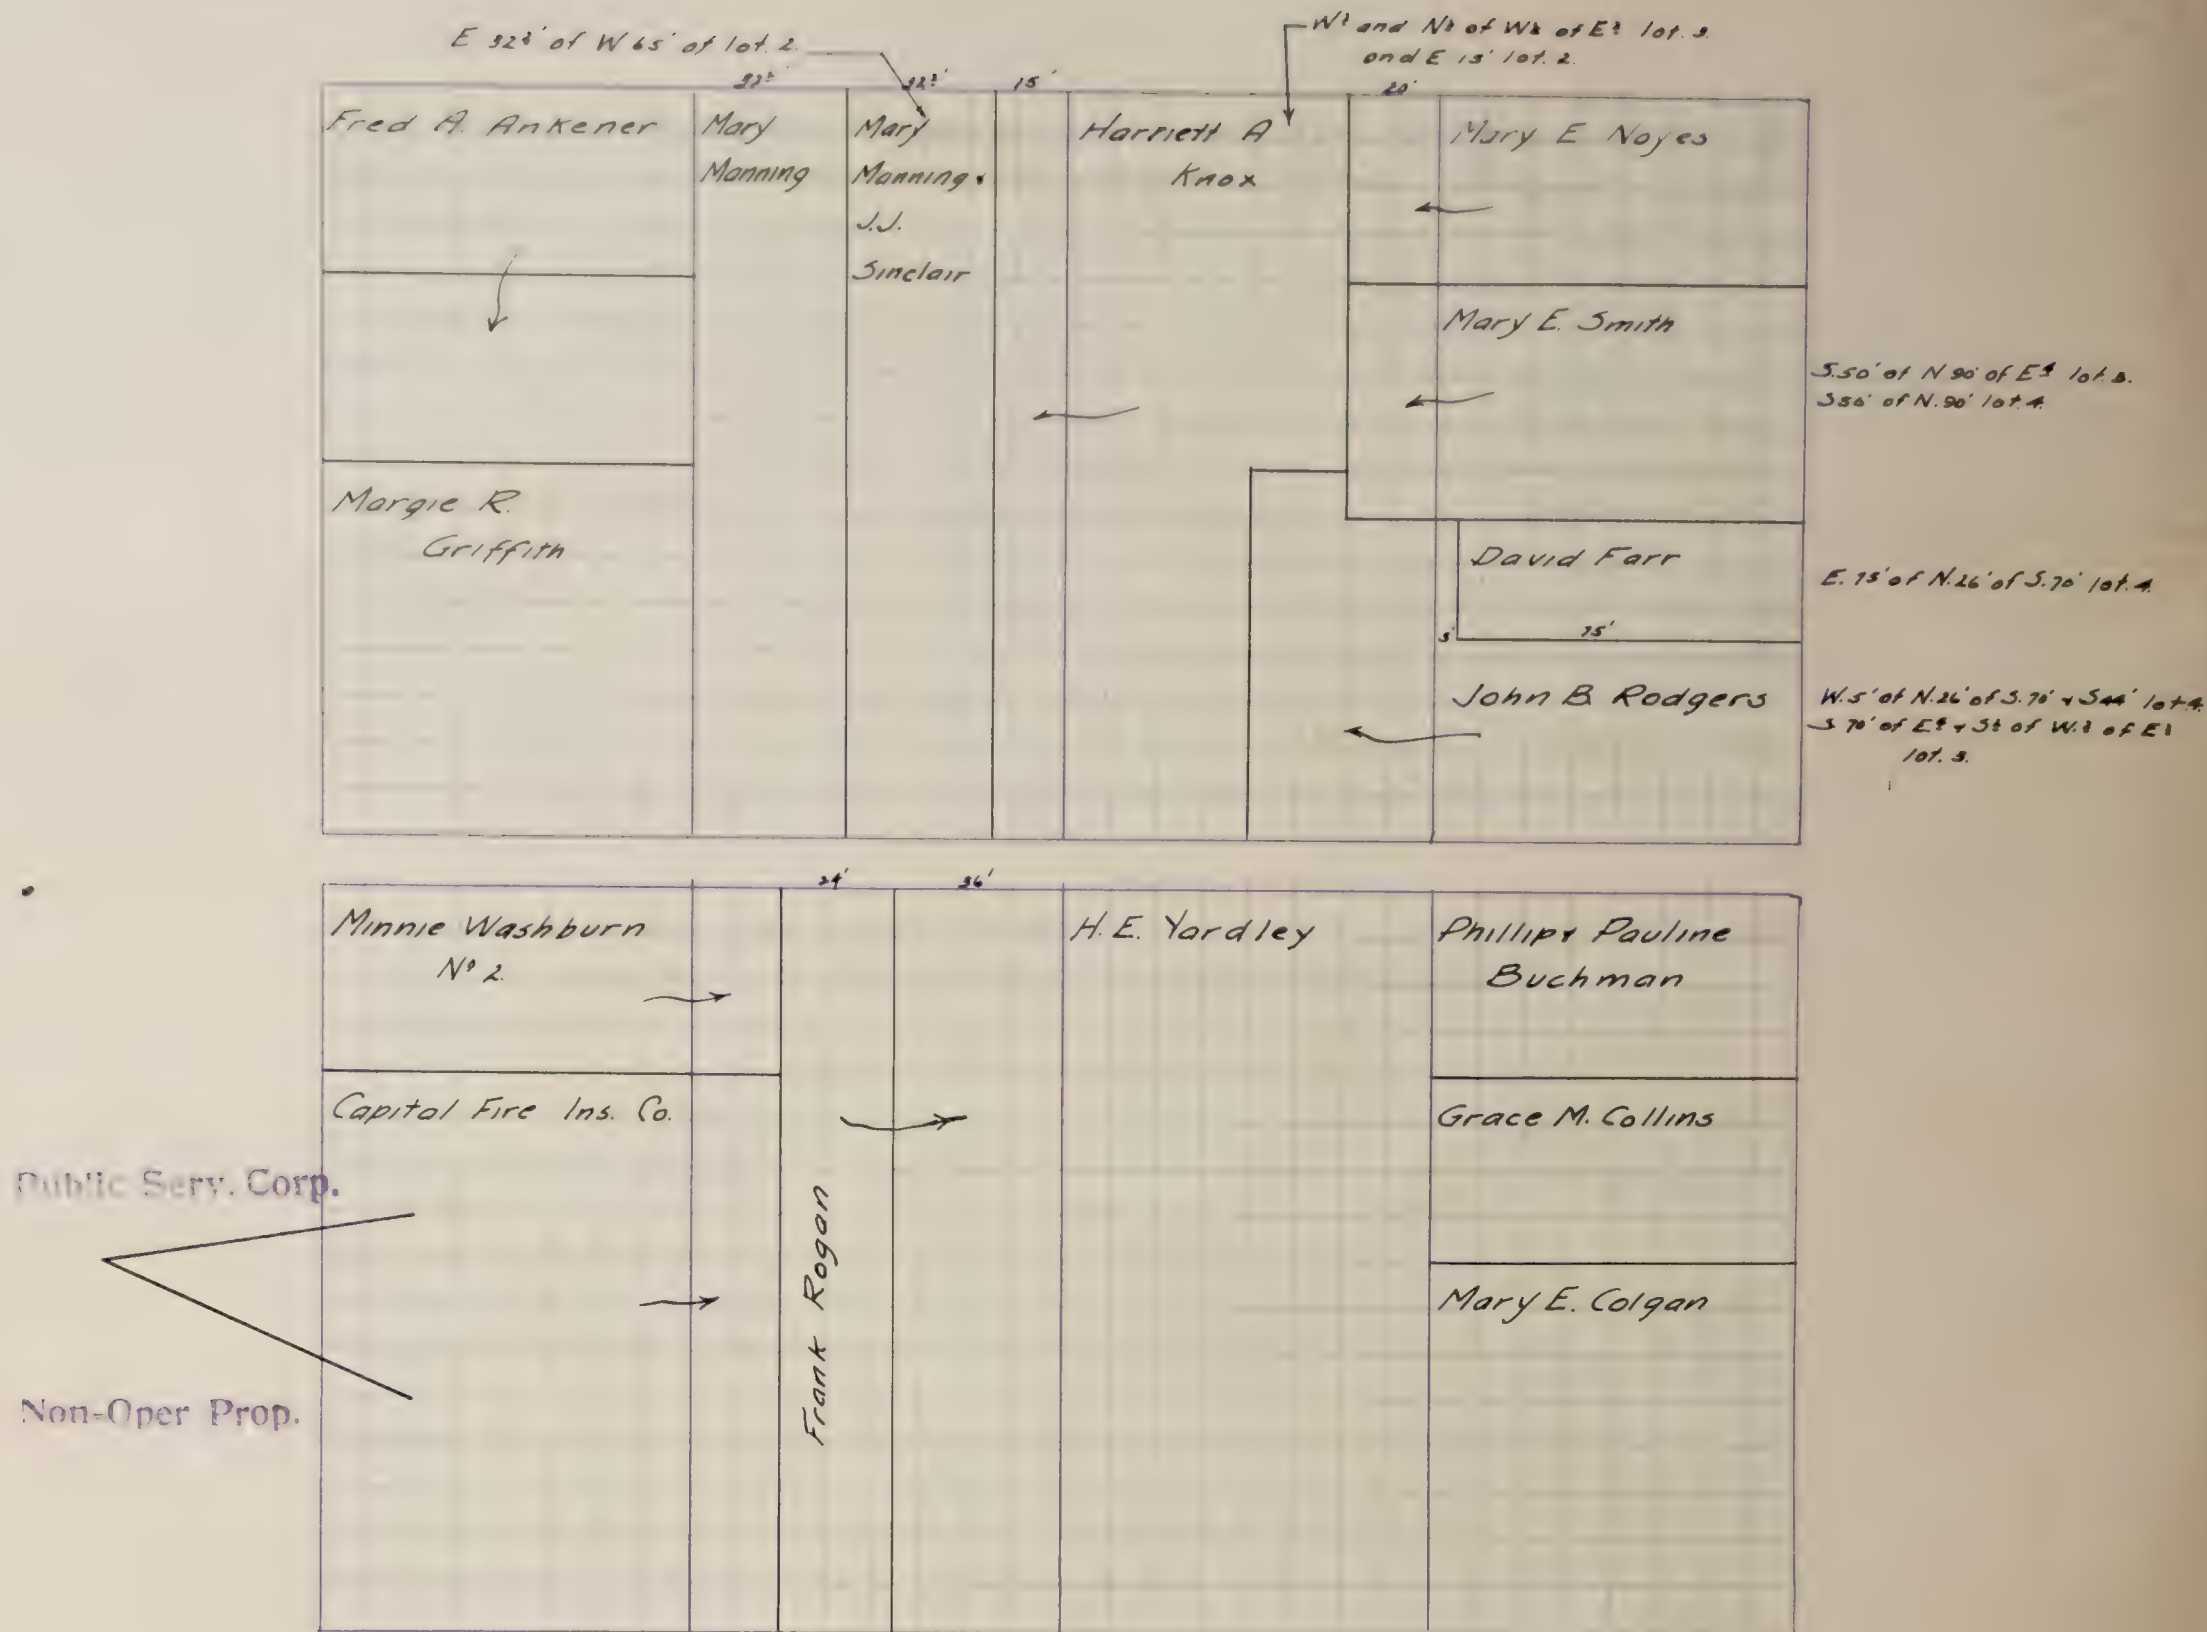 E 32½' of W 65' of lot. 2.
W½ and N½ of W½ of E½ lot. 3.
and E 15' lot. 2.
32½' 32½' 15' 20'
Fred A. Ankener
Mary
Manning
Mary
Manning &
J.J.
Sinclair
Harriett A
Knox
Mary E Noyes
Mary E. Smith
S.50' of N 90' of E¼ lot. 3.
S50' of N.90' lot. 4.
Margie R.
Griffith
David Farr
E. 75' of N.26' of S.70' lot. 4.
5' 75'
John B. Rodgers
W.5' of N.26' of S.70' & S44' lot 4.
S 70' of E¼ & S½ of W.½ of E½
lot. 3.
24' 36'
Minnie Washburn
Nº 2.
H.E. Yardley
Phillip & Pauline
Buchman
Capital Fire Ins. Co.
Grace M. Collins
Public Serv. Corp.
Frank Rogan
Mary E. Colgan
Non-Oper Prop.